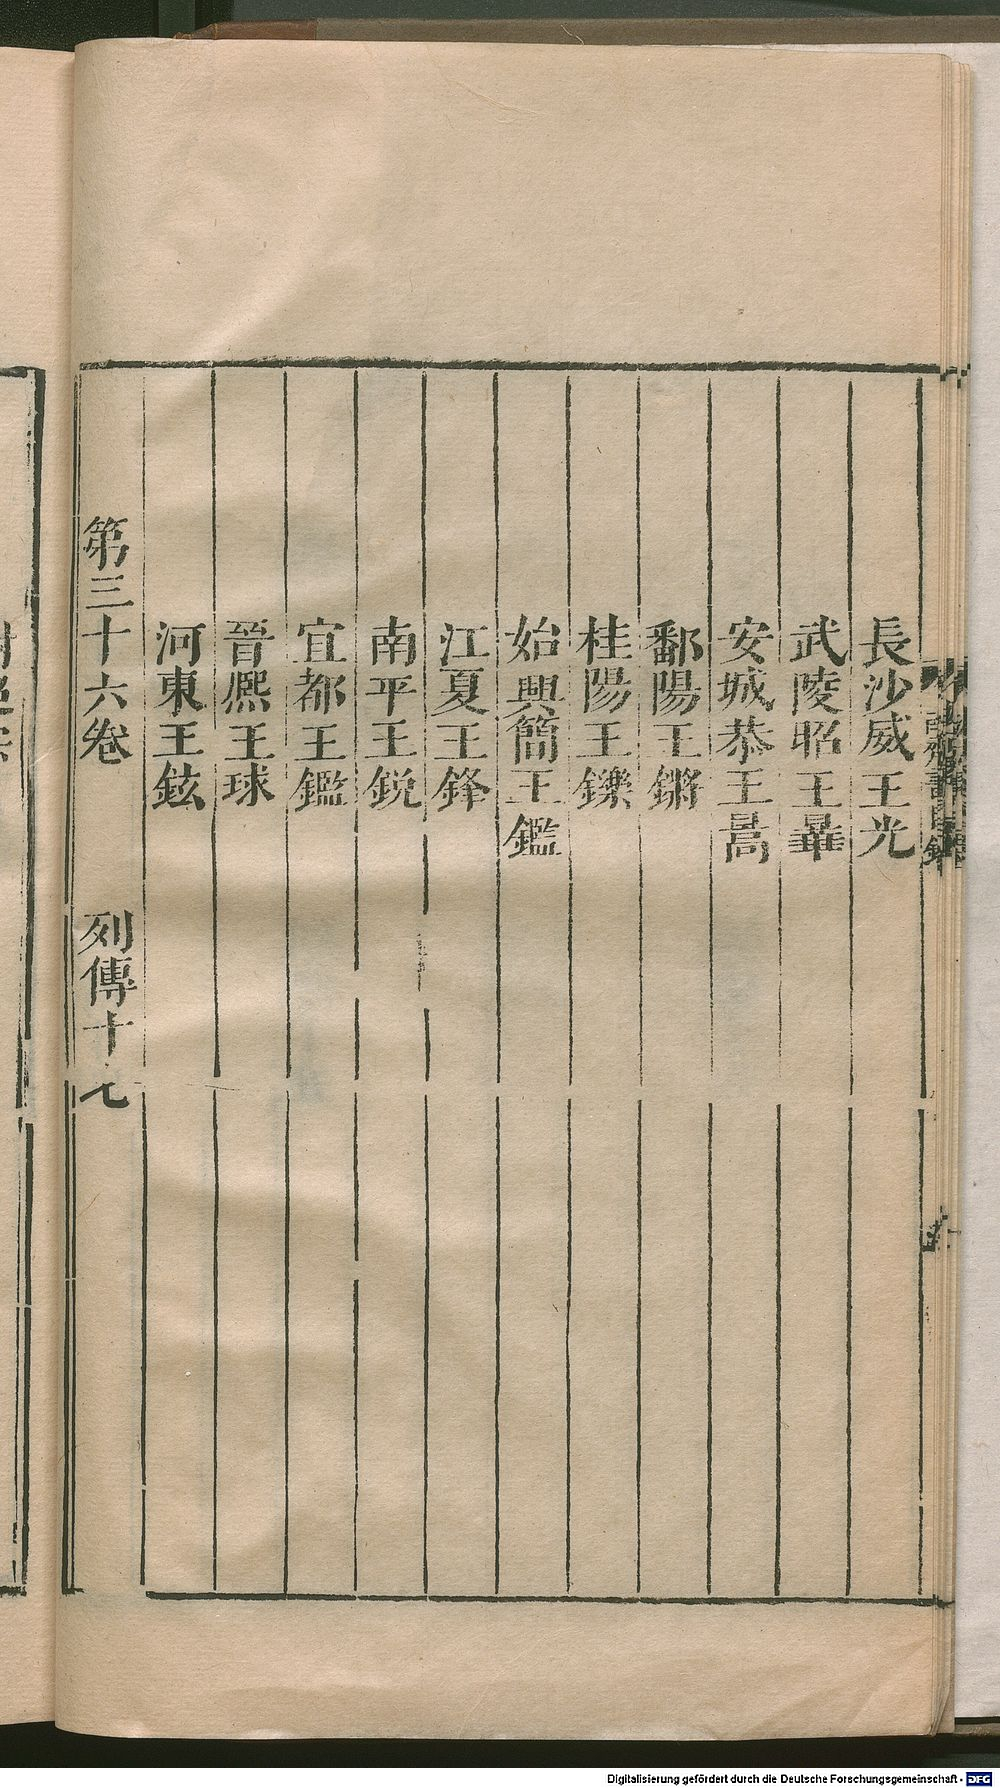 長沙威王光
武陵昭王㬇
安城恭王暠
鄱陽王鏘
桂陽王鑠
始興簡王鑑
江夏王鋒
南平王銳
宜都王鑑
晉熈王球
河東王鉉
第三十六卷 列傳十七
Digitalisierung gefördert durch die Deutsche Forschungsgemeinschaft - DFG